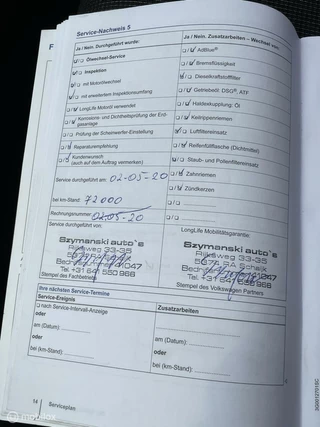 Service-Nachweis 5
Ja / Nein. Durchgeführt wurde:
Ölwechsel-Service
Inspektion
mit Motorölwechsel
mit erweitertem Inspektionsumfang
LongLife Motoröl verwendet
Korrosions- und Dichtheitsprüfung der Erdgasanlage
Prüfung der Scheinwerfer-Einstellung
Reparaturempfehlung
Kundenwunsch
(auch auf dem Auftrag vermerken)
Service durchgeführt am: 02-05-20
bei km-Stand: 72000
Rechnungsnummer: 02-05-20
Service durchgeführt von:
Szymanski auto`s
Rijksweg 33-35
Tel. +31 641 550 966
Stempel des Fachbetriebs
Ja / Nein. Zusatzarbeiten – Wechsel von:
AdBlue®
Bremsflüssigkeit
Dieselkraftstofffilter
Getriebeöl: DSG®, ATF
Haldexkupplung: Öl
Keilrippenriemen
Luftfiltereinsatz
Reifenfüllflasche (Dichtmittel)
Staub- und Pollenfiltereinsatz
Zahnriemen
Zündkerzen
LongLife Mobilitätsgarantie:
Szymanski auto`s
Rijksweg 33-35
5374 RA Schaijk
Stempel des Volkswagen Partners
Ihre nächsten Service-Termine
Service-Ereignis
nach Service-Intervall-Anzeige
oder
am (Datum):
oder
bei (km-Stand):
Zusatzarbeiten
am (Datum):
oder
bei (km-Stand):
14 Serviceplan